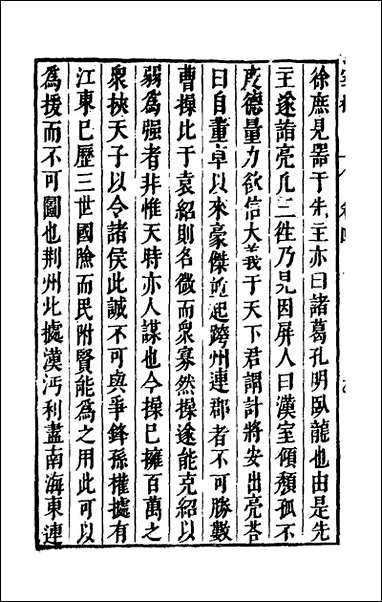 徐庶見器于先主亦曰諸葛孔明臥龍也由是先
主遂詣亮凡三徃乃見因屏人曰漢室傾頹孤不
度德量力欲信大義于天下君謂計將安出亮荅
曰自董卓以來豪傑並起跨州連郡者不可勝數
曹操比于袁紹則名微而衆寡然操遂能克紹以
弱為强者非惟天時亦人謀也今操已擁百萬之
衆挾天子以令諸侯此誠不可與爭鋒孫權據有
江東已歷三世國險而民附賢能為之用此可以
為援而不可圖也荆州北據漢沔利盡南海東連